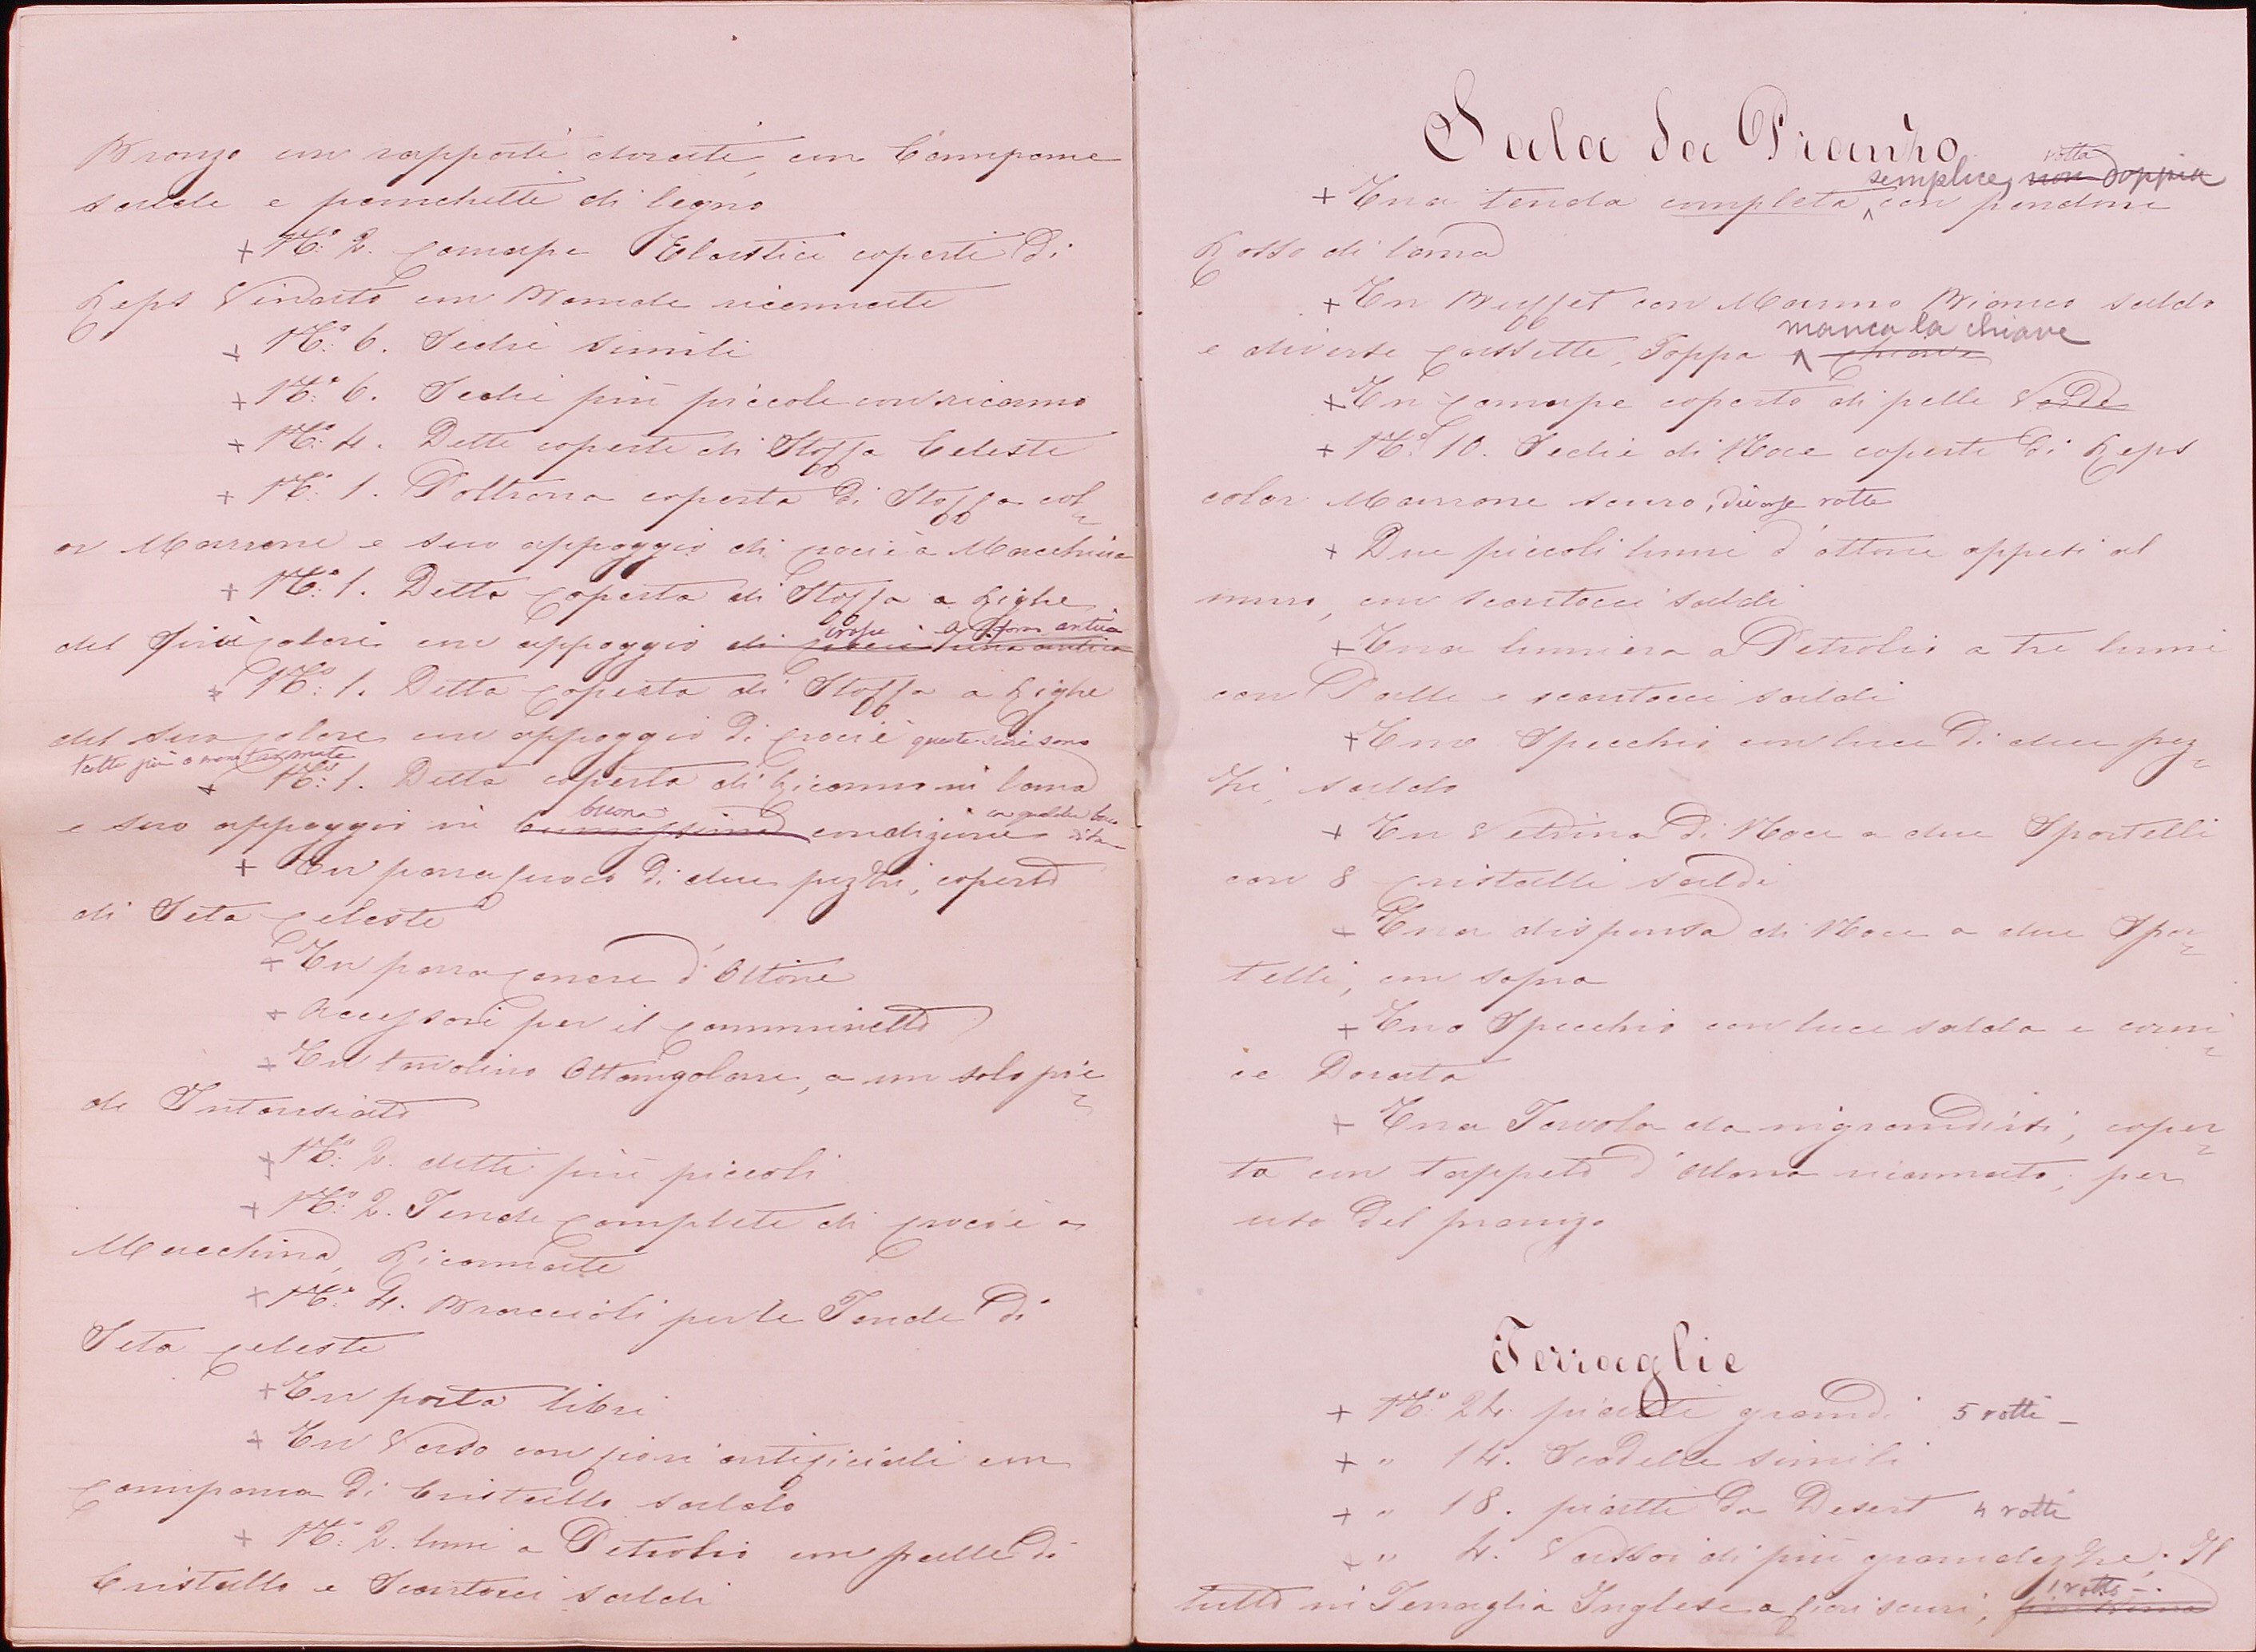 Bronzo con rapporti dorati, con Campane
salde e panchette di legno
+ N.º 2. Canape Elastici coperti di
Reps Vindato con Bande ricamate
+ N.º 6. Sedie simili
+ N.º 6. Sedie più piccole con ricamo
+ N.º 4. Dette coperte di Stoffa Celeste
+ N.º 1. Poltrona coperta di Stoffa col=
or Marrone e suo appoggio di crociè a Macchina
+ N.º 1. Detta Coperta di Stoffa a Righe
del Suo Colore con appoggio di
+ N.º 1. Detta Coperta di Stoffa a Righe
del suo Colore con appoggio di Crociè queste sedie sono
tutte più o meno tarmate
+ N.º 1. Detta coperta di Ricamo in lana
buona
e suo appoggio in buonissima condizione
+ Un parafuoco di due pezzi, coperto
di Seta Celeste
+ Un para Cenere d'Ottone
+ Accessori per il Camminetto
+ Un tavolino Ottangolare, a un solo pie=
de Intarsiato
+ N.º 2. detti più piccoli
+ N.º 2. Tende Complete di Crociè a
Macchina, Ricamate
+ N.º 4. Braccioli per le Tende di
Seta Celeste
+ Un porta libri
+ Un Vaso con fiori artificiali con
Campana di Cristallo saldo
+ N.º 2. lumi a Petrolio con palle di
Cristallo e Scartocci saldi
Sala da Pranzo
rotta
semplice, non doppia
+ Una tenda completa con pendone
Rosso di lana
+ Un Buffet con Marmo Bianco saldo
manca la chiave
e diverse Cassette, Toppa chiave
+ Un Canape coperto di pelle
+ N.º 10. Sedie di Noce coperte di Reps
color Marrone scuro, diverse rotte
+ Due piccoli lumi d'ottone appesi al
muro, con scartocci saldi
+ Una lumiera a Petrolio a tre lumi
con Palle e scartocci saldi
+ Uno Specchio con luce di due pez=
zi, saldo
+ Un Vetrina di Noce a due Sportelli
con 8 Cristalli saldi
+ Una dispensa di Noce a due Spor=
telli, con sopra
+ Uno Specchio con luce salda e corni=
ce Dorata
+ Una Tavola da ingrandirsi, coper=
ta con tappeto d'alana ricamato, per
uso del pranzo
Terraglie
+ N.º 24. piatti grandi 5 rotti -
+ " 14. Scodelle simili
+ " 18. piatti da Desert 4 rotti
+ " 4. Vassoi di più grandezze. Il
1 rotto -.
tutto in Terraglia Inglese a fiori scuri,